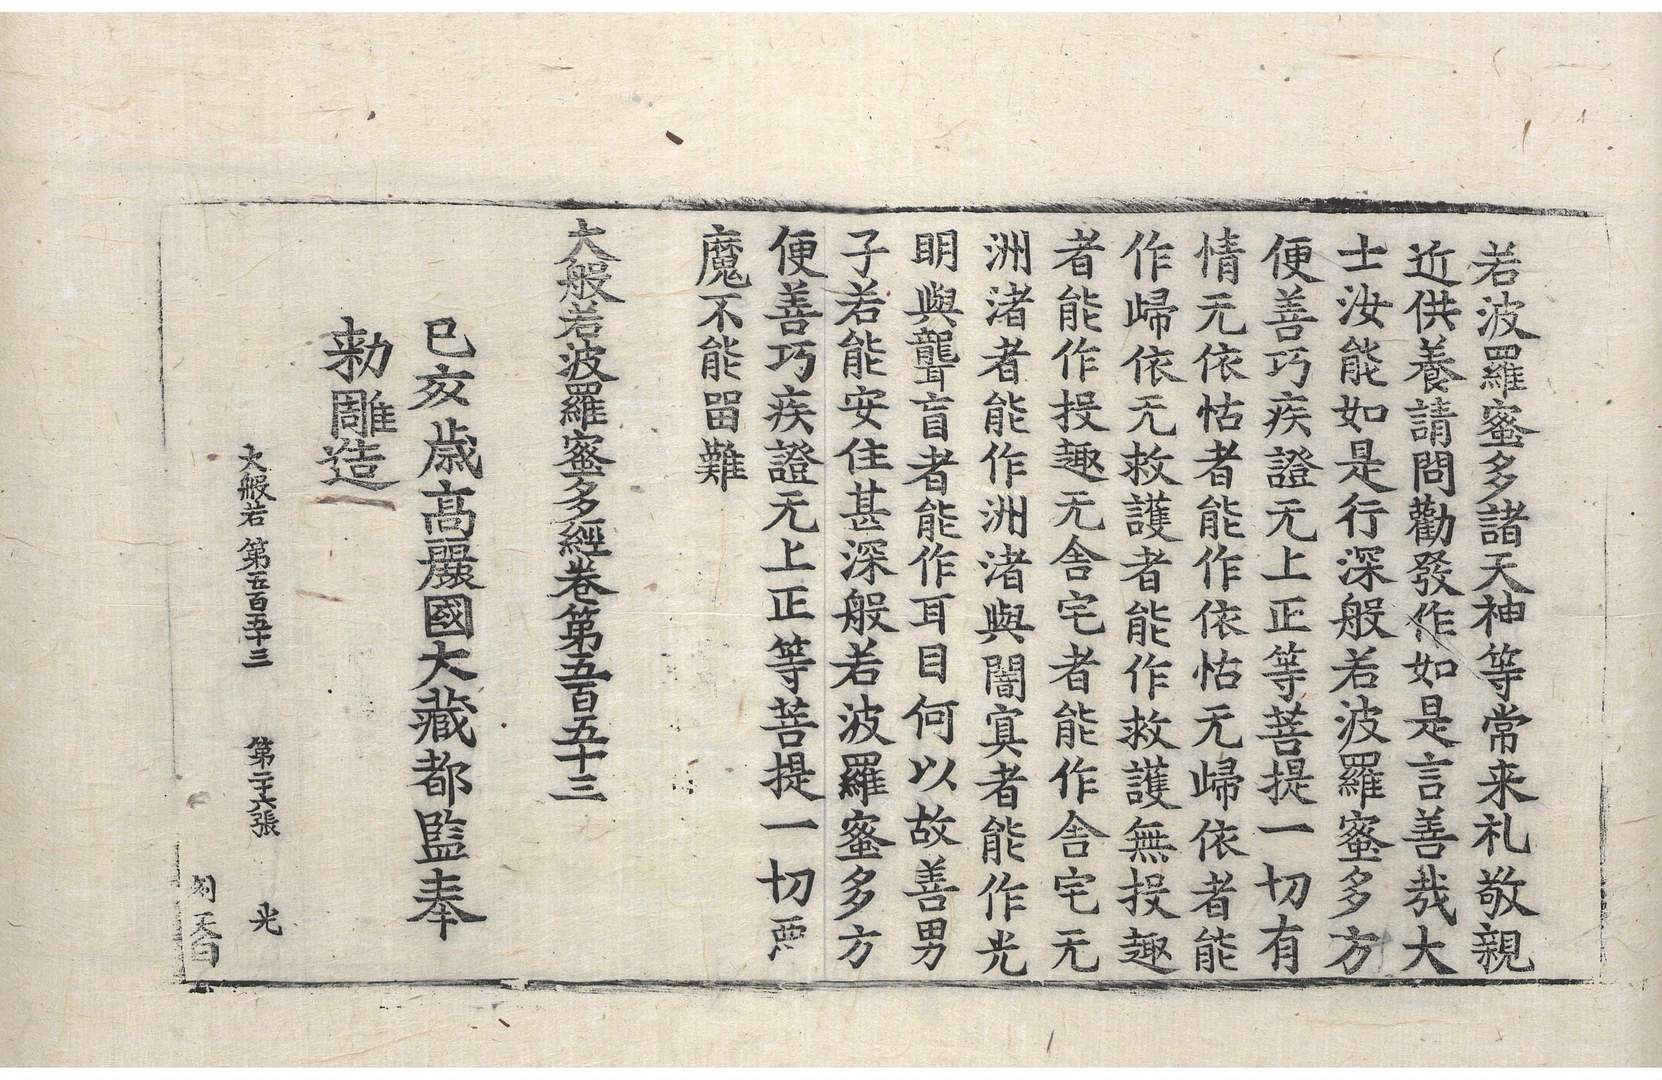 若波羅蜜多諸天神等常来礼敬親
近供養請問勸發作如是言善㢤大
士汝能如是行深般若波羅蜜多方
便善巧疾證无上正等菩提一切有
情无依怙者能作依怙无歸依者能
作歸依无救護者能作救護無投趣
者能作投趣无舎宅者能作舎宅无
洲渚者能作洲渚與闇㝠者能作光
明與聾盲者能作耳目何以故善男
子若能安住甚深般若波羅蜜多方
便善巧疾證无上正等菩提一切悪
魔不能留難
大般若波羅蜜多經卷第五百五十三
已亥歳高麗國大藏都監奉
勑雕造
大般若 第五百五十三 第二十六張 光